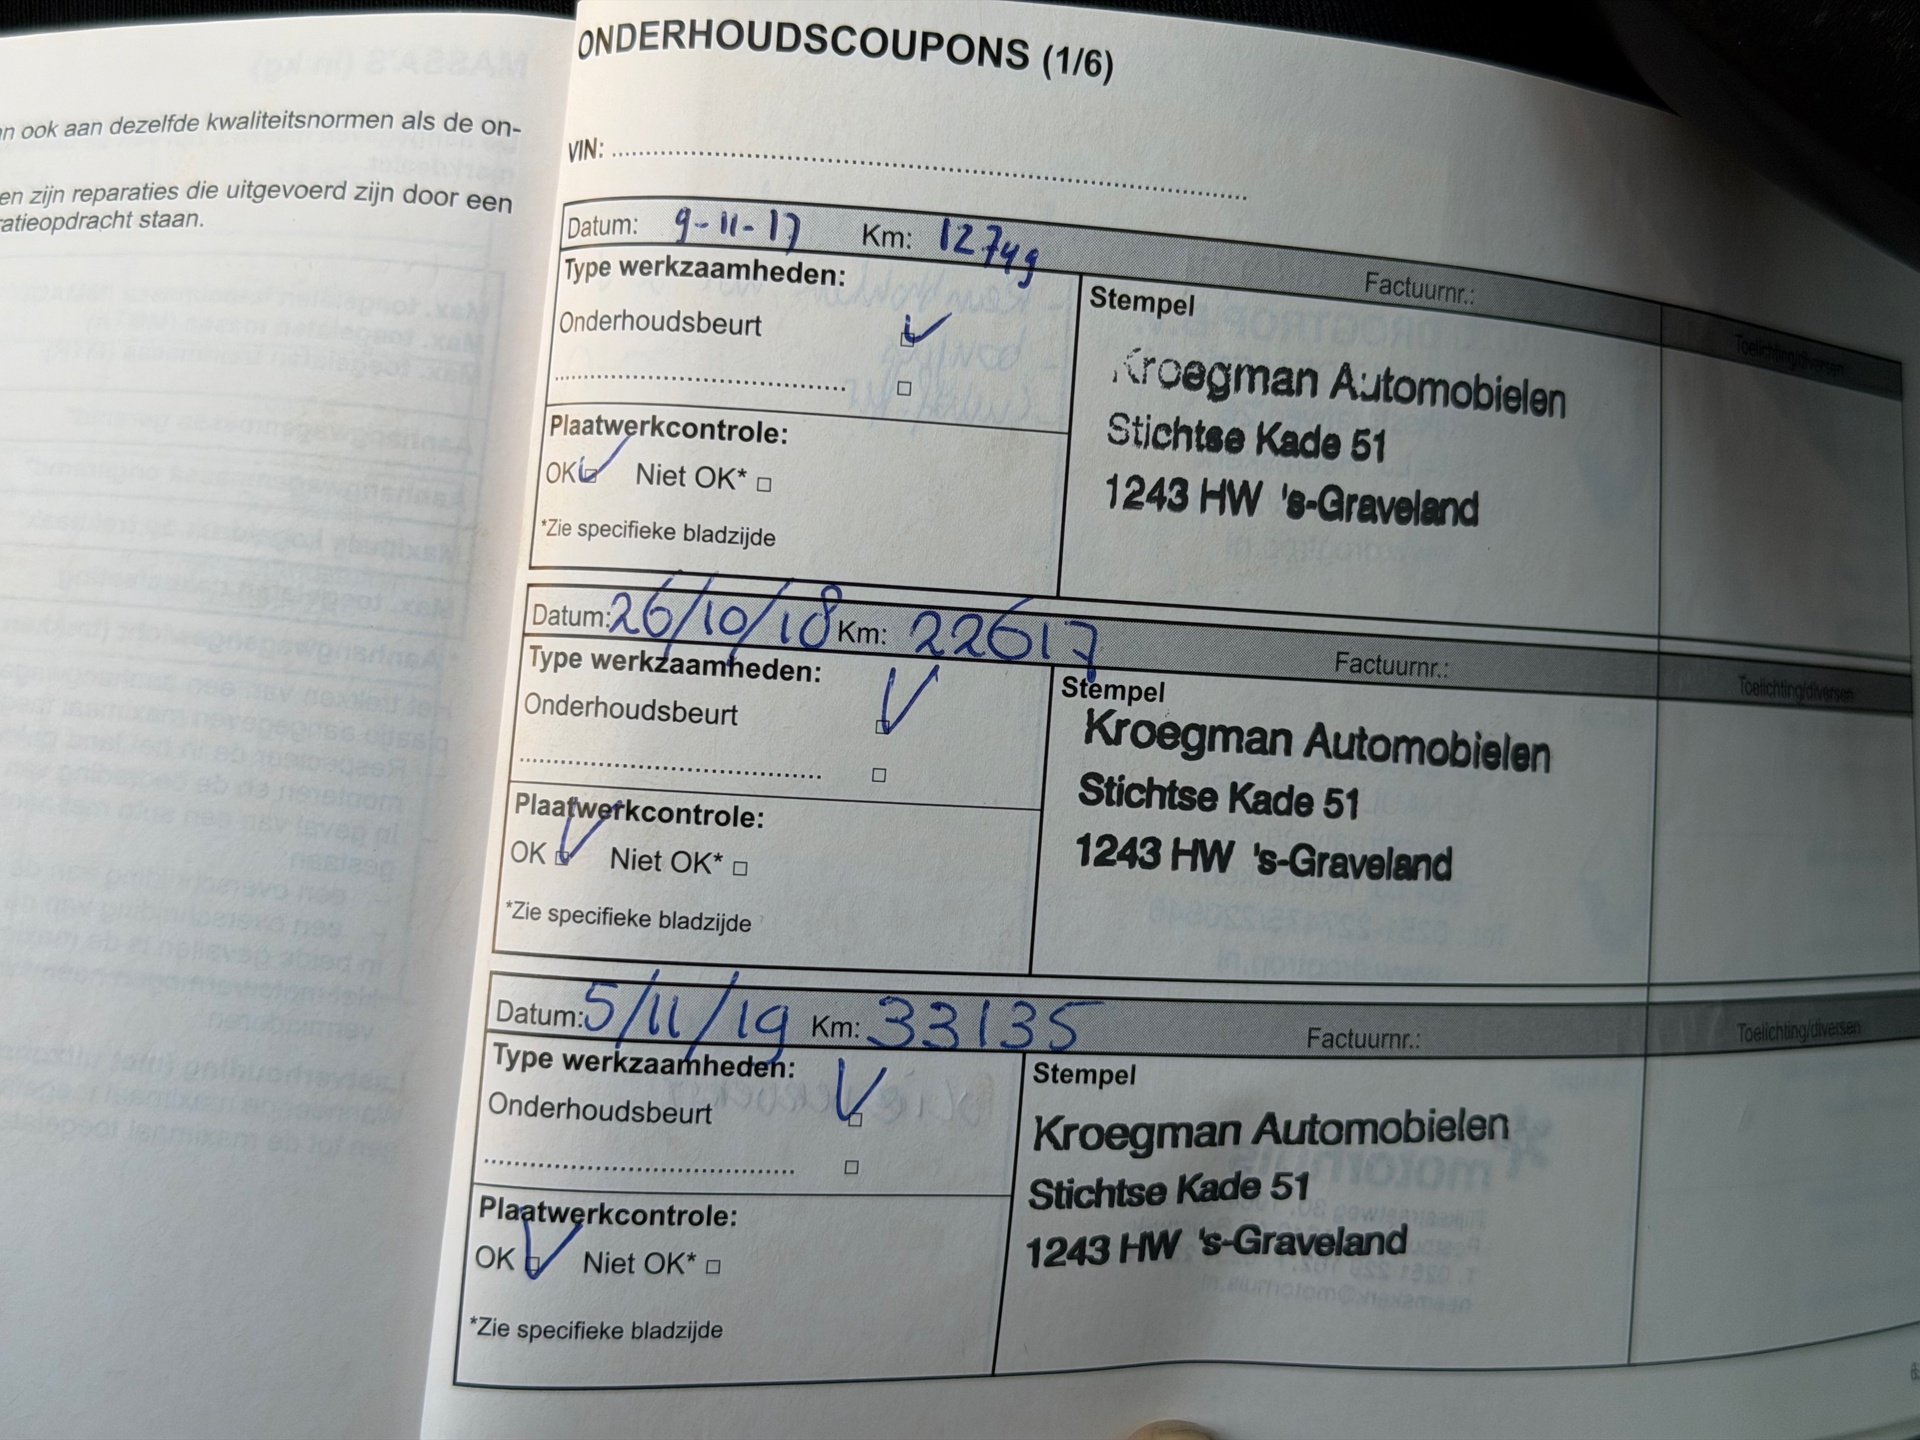 an ook aan dezelfde kwaliteitsnormen als de on-
en zijn reparaties die uitgevoerd zijn door een
ratieopdracht staan.
ONDERHOUDSCOUPONS (1/6)
VIN:
Datum: 9-11-17 Km: 12749 Factuurnr.:
Toelichting/diversen
Type werkzaamheden:
Onderhoudsbeurt
Plaatwerkcontrole:
OK Niet OK*
*Zie specifieke bladzijde
Stempel
Kroegman Automobielen
Stichtse Kade 51
1243 HW 's-Graveland
Datum: 26/10/18 Km: 22617 Factuurnr.:
Toelichting/diversen
Type werkzaamheden:
Onderhoudsbeurt
Plaatwerkcontrole:
OK Niet OK*
*Zie specifieke bladzijde
Stempel
Kroegman Automobielen
Stichtse Kade 51
1243 HW 's-Graveland
Datum: 5/11/19 Km: 33135 Factuurnr.:
Toelichting/diversen
Type werkzaamheden:
Onderhoudsbeurt
Plaatwerkcontrole:
OK Niet OK*
*Zie specifieke bladzijde
Stempel
Kroegman Automobielen
Stichtse Kade 51
1243 HW 's-Graveland